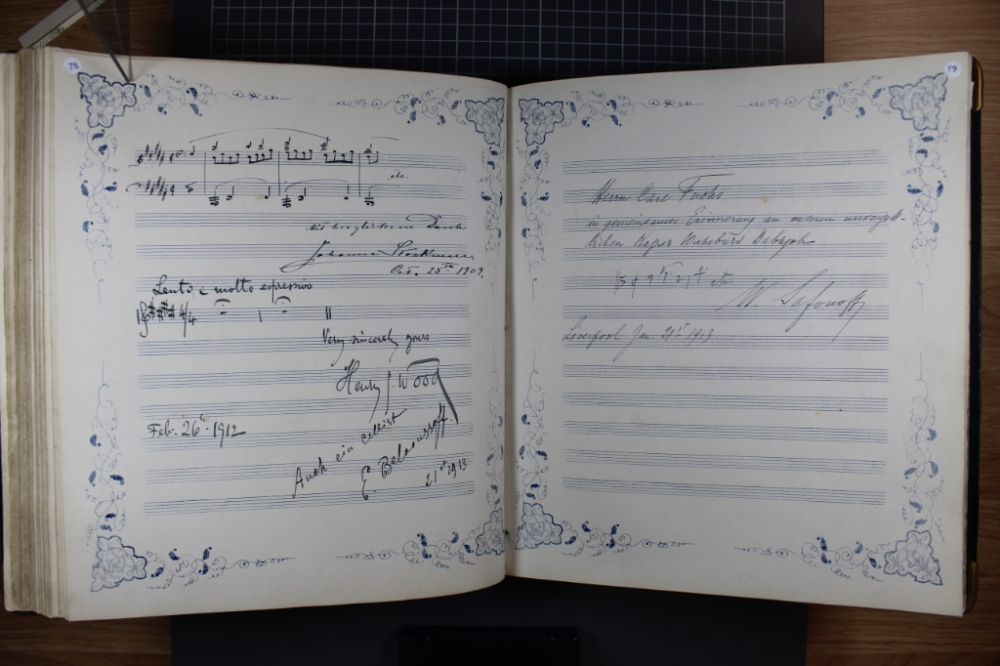 etc.
mit herzlichem Dank
Johanna Stockmarr
Oct. 28th 1909.
Lento e molto espressivo
4/4
Very sincerely yours
Henry J. Wood
Feb. 26th 1912
Auch ein cellist
E. Belousoff
21st 1913
Herrn Carl Fuchs
in gemeinsamer Erinnerung an unseren unvergess-
lichen
etc
W. Safonoff
Liverpool Jan 21st 1913.